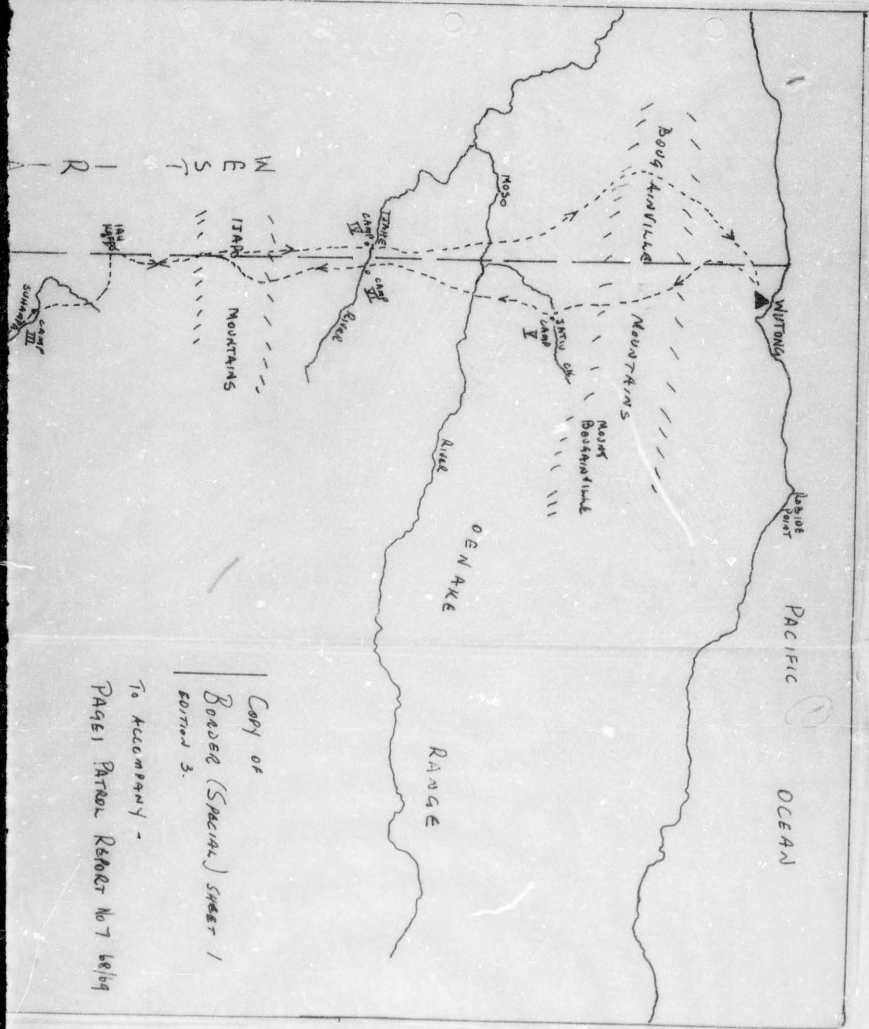 PACIFIC OCEAN
WUTONG
ROBIDE
POINT
BOUGAINVILLE MOUNTAINS
MOUNT
BOUGAINVILLE
JATIU CK
CAMP
V
MOSO
River
OENAKE RANGE
CAMP
IV
CAMP
VI
River
IJAPO MOUNTAINS
WEST IR
IAU
SUHAMPA
CAMP
III
COPY OF
BORDER (SPECIAL) SHEET 1
EDITION 3.
TO ACCOMPANY -
PAGEI PATROL REPORT No 7 68/69